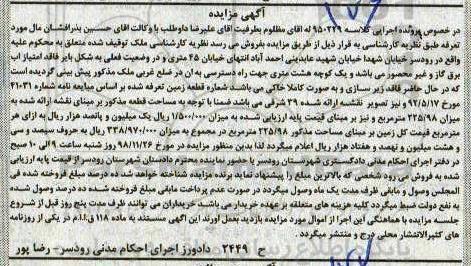 آگهی مزایده
در خصوص پرونده اجرایی کلاسه ۹۵۰۲۲۹ له اقای مظلوم بطرفیت اقای علیرضا داوطلب با وکالت اقای حسین بذرافشان مال مورد
تعرفه طبق نظریه کارشناسی به قرار ذیل از طریق مزایده بفروش می رسد نظریه کارشناسی ملک توقیف شده متعلق به محکوم علیه
واقع در رودسر خیابان شهدا خیابان شهید عابدینی احمد آباد انتهای خیابان ۴۵ متری و در وضعیت فعلی به شکل بایر فاقد امتیاز آب
برق گاز و غیر محصور می باشد و یک کوچه هشت متری جهت راه دسترسی به ان در ضلع غربی ملک مذکور پیش بینی گردیده است
که در حال حاضر فاقد زیر سازی و به صورت کاملا خاکی می باشد شماره قطعه زمین تعرفه شده بر اساس مبایعه نامه شماره ۲۱۰۳۱
مورخ ۹۲/۵/۱۷ و نیز تصویر نقشه ارائه شده ۳۹ شرقی می باشد ضمنا با توجه به مساحت قطعه مذکور بر مبنای نقشه ارائه شده به
میزان ۲۲۵/۹۸ مترمربع و نیز بر مبنای قیمت پایه ارزیابی شده به میزان ۱/۵۰۰/۰۰۰ ریال یک میلیون و پانصد هزار ریال به ازای هر
مترمربع قیمت کل زمین بر مبنای مساحت مذکور ۲۲۵/۹۸ مترمربع در مجموع به میزان ۳۳۸/۹۷۰/۰۰۰ ریال به حروف سیصد و سی
و هشت میلیون و نهصد و هفتاد هزار ریال اعلام میگردد لذا بدین منظور مزایده در مورخ ۹۸/۱۱/۲۶ روز شنبه ساعت ۹ الی ۱۰ صبح
در دفتر اجرای احکام مدنی دادگستری شهرستان رودسر با حضور نماینده محترم دادستان شهرستان رودسر از قیمت پایه ارزیابی
شده به فروش می رود شخصی که بالاترین مبلغ را پیشنهاد نماید برنده مزایده شناخته خواهد شد ده درصد مبلغ فروخته شده فی
المجلس وصول و مابقی ظرف مدت یک ماه وصول میگردد در صورت عدم پرداخت مابقی مبلغ فروخته شده ده درصد وصول شده
به نفع دولت ضبط میگردد کلیه هزینه های متعلقه بر عهده خریدار می باشد خریداران می توانند ظرف مدت پنج روز قبل از شروع
جلسه مزایده با هماهنگی این اجرا از اموال مورد مزایده بازدید بعمل اورند این آگهی مستند به ماده ۱۱۸ ق.ا.م در یکی از روزنامه
های کثیرالانتشار محلی درج و منتشر میگردد .
ح ۲۴۴۹ دادورز اجرای احکام مدنی رودسر- رضا پور